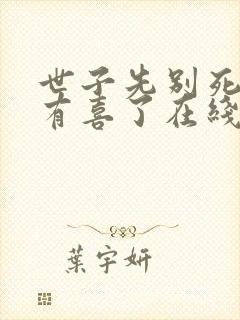 世子先别死
有喜了在綫
葉宇妍